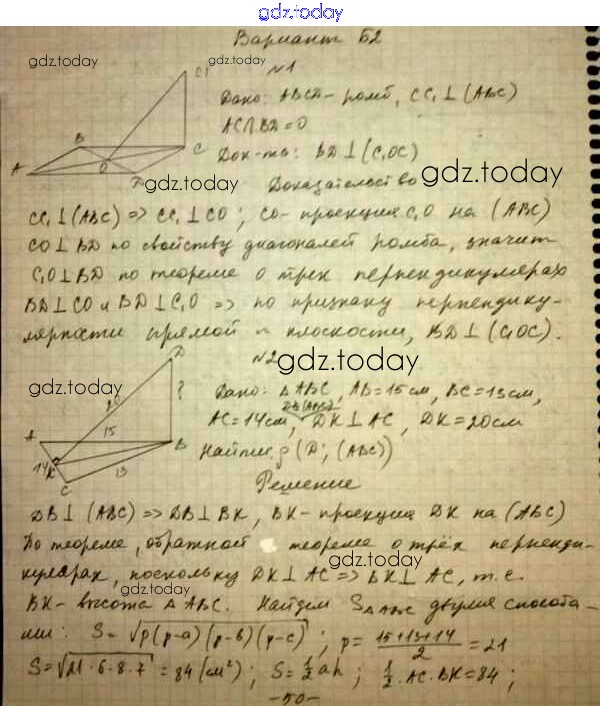 gdz.today
Вариант Б2
gdz.today
gdz.today
№1
C1
Дано: ABCD - ромб, CC₁⊥(ABC)
AC∩BD=O
B
C
Док-ть: BD⊥(C₁OC)
A
O
D
gdz.today
Доказательство
gdz.today
CC₁⊥(ABC) => CC₁⊥CO; CO- проекция C₁O на (ABC)
CO⊥BD по свойству диагоналей ромба, значит
C₁O⊥BD по теореме о трех перпендикулярах
BD⊥CO и BD⊥C₁O => по признаку перпендику-
лярности прямой и плоскости, BD⊥(C₁OC).
D
№2
gdz.today
gdz.today
20
?
Дано: △ABC, AB=15см, BC=13см,
DB⊥(ABC)
AC=14см, DK⊥AC, DK=20см
A
15
B
Найти: ρ(D; (ABC))
14
K
13
C
Решение
DB⊥(ABC) => DB⊥BK, BK- проекция DK на (ABC)
По теореме, обратной теореме о трёх перпенди-
gdz.today
кулярах, поскольку DK⊥AC => BK⊥AC, т.е.
gdz.today
BK- высота △ABC. Найдем S△ABC двумя способа-
ми: S=√p(p-a)(p-b)(p-c); p= 15+13+14 / 2 =21
S=√21·6·8·7 =84(см²); S=½ah; ½·AC·BK=84;
-50-
gdz.today